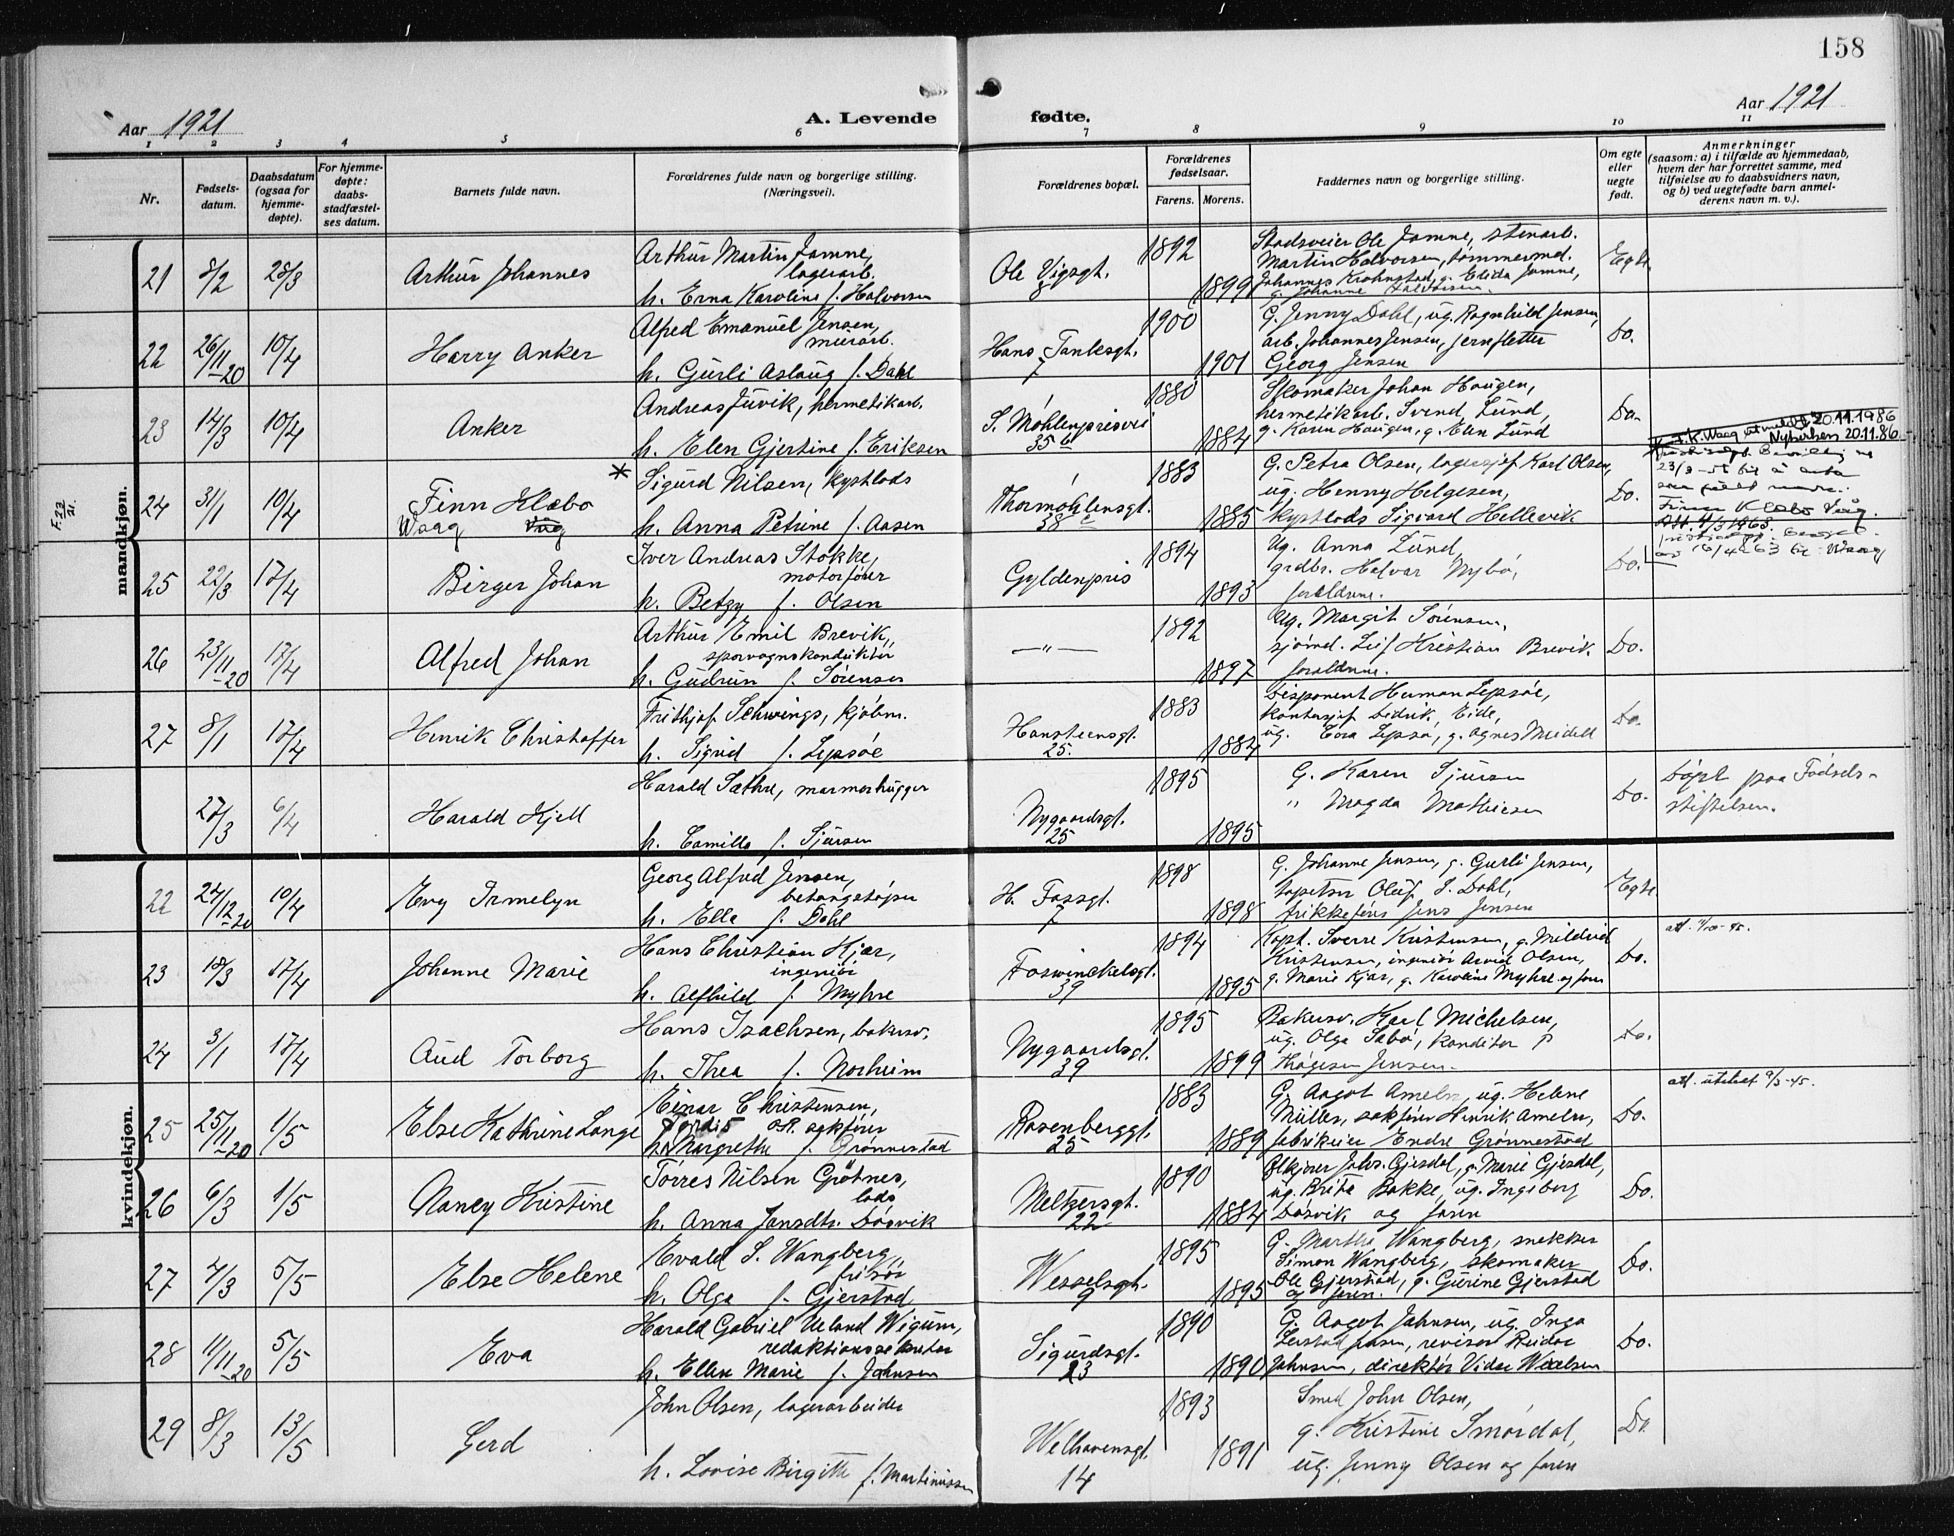 158
Aar 1921
A. Levende
fødte.
Aar 1921
1 2 3 4 5 6 7 8 9 10 11
Nr.
Fødsels-
datum.
Daabsdatum
(ogsaa for
hjemme-
døpte).
For hjemme-
døpte:
daabs-
stadfæstel-
ses datum.
Barnets fulde navn.
Forældrenes fulde navn og borgerlige stilling.
(Næringsvei).
Forældrenes bopæl.
Forældrenes
fødselsaar.
Farens. Morens.
Faddernes navn og borgerlige stilling.
Om egte
eller
uegte
født.
Anmerkninger
(saasom: a) i tilfælde av hjemmedaab,
hvem der har forrettet samme, med
tilføielse av to daabsvidners navn,
og b) ved uegtefødte barn anmel-
derens navn m. v.).
mandkjøn.
21 8/2 28/3 Arthur Johannes
Arthur Martin Jamne,
lagerarb.
h. Erna Karoline f. Halvorsen
Ole Vigsgt.
8
1892 1899
Stadsveier Ole Jamne, stenarb.
Martin Halvorsen, tømmermd.
Johannes Krohnstad, g. Elida Jamne,
g. Johanne Halvorsen.
Egte.
22 26/11-20 10/4 Harry Anker
Alfred Emanuel Jensen,
murarb.
h. Gurli Aslaug f. Dahl
Hans Tanksgt.
7
1900 1901
G. Jenny Dahl, ug. Ragnhild Jensen,
arb. Johannes Jensen, jernfletter
Georg Jensen
Do.
23 14/3 10/4 Anker
Andreas Juvik, hermetikarb.
h. Elen Gjertine f. Eriksen
S. Møhlenprisvei
35 b
1880 1884
Skomaker Johan Haugen,
hermetikarb. Svend Lund,
g. Karen Haugen, g. Elen Lund
Do.
F. 23/21.
24 31/1 10/4 Finn Klæbo
Waag Vaag
* Sigurd Nilsen, kystlods
h. Anna Petrine f. Aasen
Thormøhlensgt.
38 c
1883 1885
G. Petra Olsen, lagersjef Karl Olsen,
ug. Henny Helgesen,
kystlods Sigvard Hellevik
Do.
20.11.1986
20.11.86
Finn Klæbo Våg.
25 22/3 17/4 Birger Johan
Iver Andreas Stokke,
motorfører
h. Betzy f. Olsen
Gyldenpris
1894 1893
Ug. Anna Lund,
grdbr. Halvar Nybø,
forældrene.
Do.
26 23/11-20 17/4 Alfred Johan
Arthur Emil Brevik,
sporvognskonduktør
h. Gudrun f. Sørensen
—"—
1892 1897
Ug. Margit Sørensen,
sjømd. Leif Kristian Brevik
forældrene.
Do.
27 8/1 17/4 Henrik Christoffer
Frithjof Schwings, kjøbm.
h. Sigrid f. Lepsøe
Hansteensgt.
25.
1883 1884
Disponent Herman Lepsøe,
kontorsjef Didrik Eide,
ug. Lepsø, g. Agnes Meidell
Do.
27/3 6/4 Harald Kjell
Harald Sæthre, marmorhugger
h. Camilla f. Sjursen
Nygaardsgt.
25
1895 1895
G. Karen Sjursen
" Magda Mathiesen
Do.
Døpt paa Fødsels-
stiftelsen.
kvindekjøn.
22 24/12-20 10/4 Evy Irmelyn
Georg Alfred Jensen,
betongstøper
h. Ella f. Dahl
H. Fossgt.
7
1898 1898
G. Johanne Jensen, g. Gurli Jensen,
tapetser Oluf S. Dahl,
trikkefører Jens Jensen
Egte.
23 18/3 17/4 Johanne Marie
Hans Christian Kjær,
ingeniør
h. Alfhild f. Myhre
Fosswinckelsgt.
39
1894 1895
Kapt. Sverre Kristensen, g. Mildrid
Kristensen, ingeniør Arvid Olsen,
g. Marie Kjær, g. Karoline Myhre og faren
Do.
24 3/1 17/4 Aud Torborg
Hans Isachsen, bakersv.
h. Thea f. Norheim
Nygaardsgt.
39
1895 1899
Bakersv. Karl Michelsen,
ug. Olga Sabø, konditor
Jensen.
Do.
25 25/11-20 1/5 Else Kathrine Lange
Einar Christensen,
Tordis o.r. sakfører
h. Margrethe f. Grønnestad
Rosenberggt.
25
1883 1889
G. Aagot Ameln, ug. Helene
Müller, sakfører Henrik Ameln,
fabrikeier Endre Grønnestad
Do.
26 6/3 1/5 Nancy Kristine
Tørres Nilsen Gjøtnes,
lods
h. Anna Jansdtr. Døsvik
Meltzersgt.
22
1890 1884
Johs. Gjesdal, g. Marie Gjesdal,
ug. Brita Bakke, ug. Ingeborg
Døsvik og faren
Do.
27 7/3 5/5 Else Helene
Evald S. Wangberg,
frisør
h. Olga f. Gjerstad
Wesselsgt.
9
1895 1895
G. Martha Wangberg, snekker
Simon Wangberg, skomaker
Ole Gjerstad, g. Gurine Gjerstad
og faren.
Do.
28 11/11-20 5/5 Eva
Harald Gabriel Ueland Wigum,
redaktionssekretær
h. Ellen Marie f. Johnsen
Sigurdsgt.
23
1890 1890
G. Aagot Johnsen, ug. Inga
revisor Reidar
Johnsen, direktør Vidar
Do.
29 8/3 13/5 Gerd
John Olsen, lagerarbeider
h. Lovise Birgitte f. Martinussen
Welhavensgt.
14
1893 1891
Smed John Olsen,
g. Kristine Smørdal,
ug. Jenny Olsen og faren
Do.